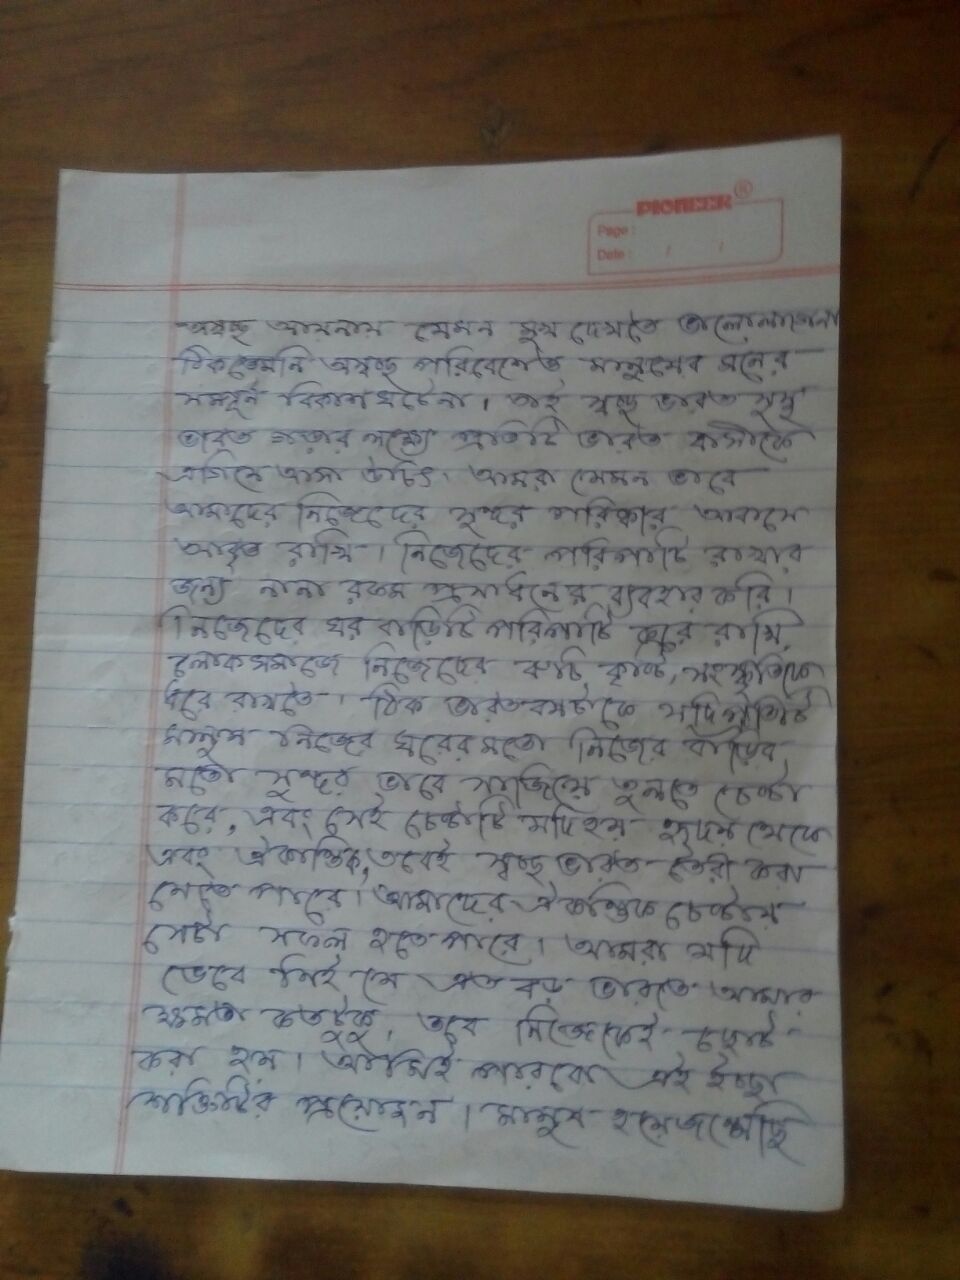 PIONEER®
Page :
Date : / /
অস্বচ্ছ আয়নায় যেমন মুখ দেখতে ভালোলাগেনা
ঠিকতেমনি অস্বচ্ছ পরিবেশেও মানুষের মনের
সম্পূর্ন বিকাশ ঘটেনা। তাই স্বচ্ছ ভারত সুস্থ
ভারত গড়ার লক্ষ্যে প্রতিটি ভারত বাসীকে
এগিয়ে আসা উচিৎ। আমরা যেমন ভাবে
আমাদের নিজেদের সুন্দর পরিষ্কার
আবৃত রাখি। নিজেদের পরিপাটি রাখার
জন্য নানা রকম প্রসাধনের ব্যবহার করি।
নিজেদের ঘর বাড়িটি পরিপাটি করে রাখি,
লোকসমাজে নিজেদের রুচি কৃষ্টি, সংস্কৃতিকে
ধরে রাখতে। ঠিক ভারতবর্ষটাকে যদি প্রতিটি
মানুষ নিজের ঘরের মতো নিজের বাড়ির
মতো সুন্দর ভাবে সাজিয়ে তুলতে চেষ্টা
করে, এবং সেই চেষ্টাটি যদি হয় হৃদয় থেকে
এবং ঐকান্তিক, তবেই স্বচ্ছ ভারত তৈরী করা
যেতে পারে। আমাদের ঐকান্তিক চেষ্টায়
সেটা সফল হতে পারে। আমরা যদি
ভেবে নিই যে এত বড় ভারতে আমার
ক্ষমতা কতটুকু, তবে নিজেকেই ছোট
করা হয়। আমিই পারবো এই ইচ্ছা
শক্তিটির প্রয়োজন। মানুষ হয়ে জন্মেছি